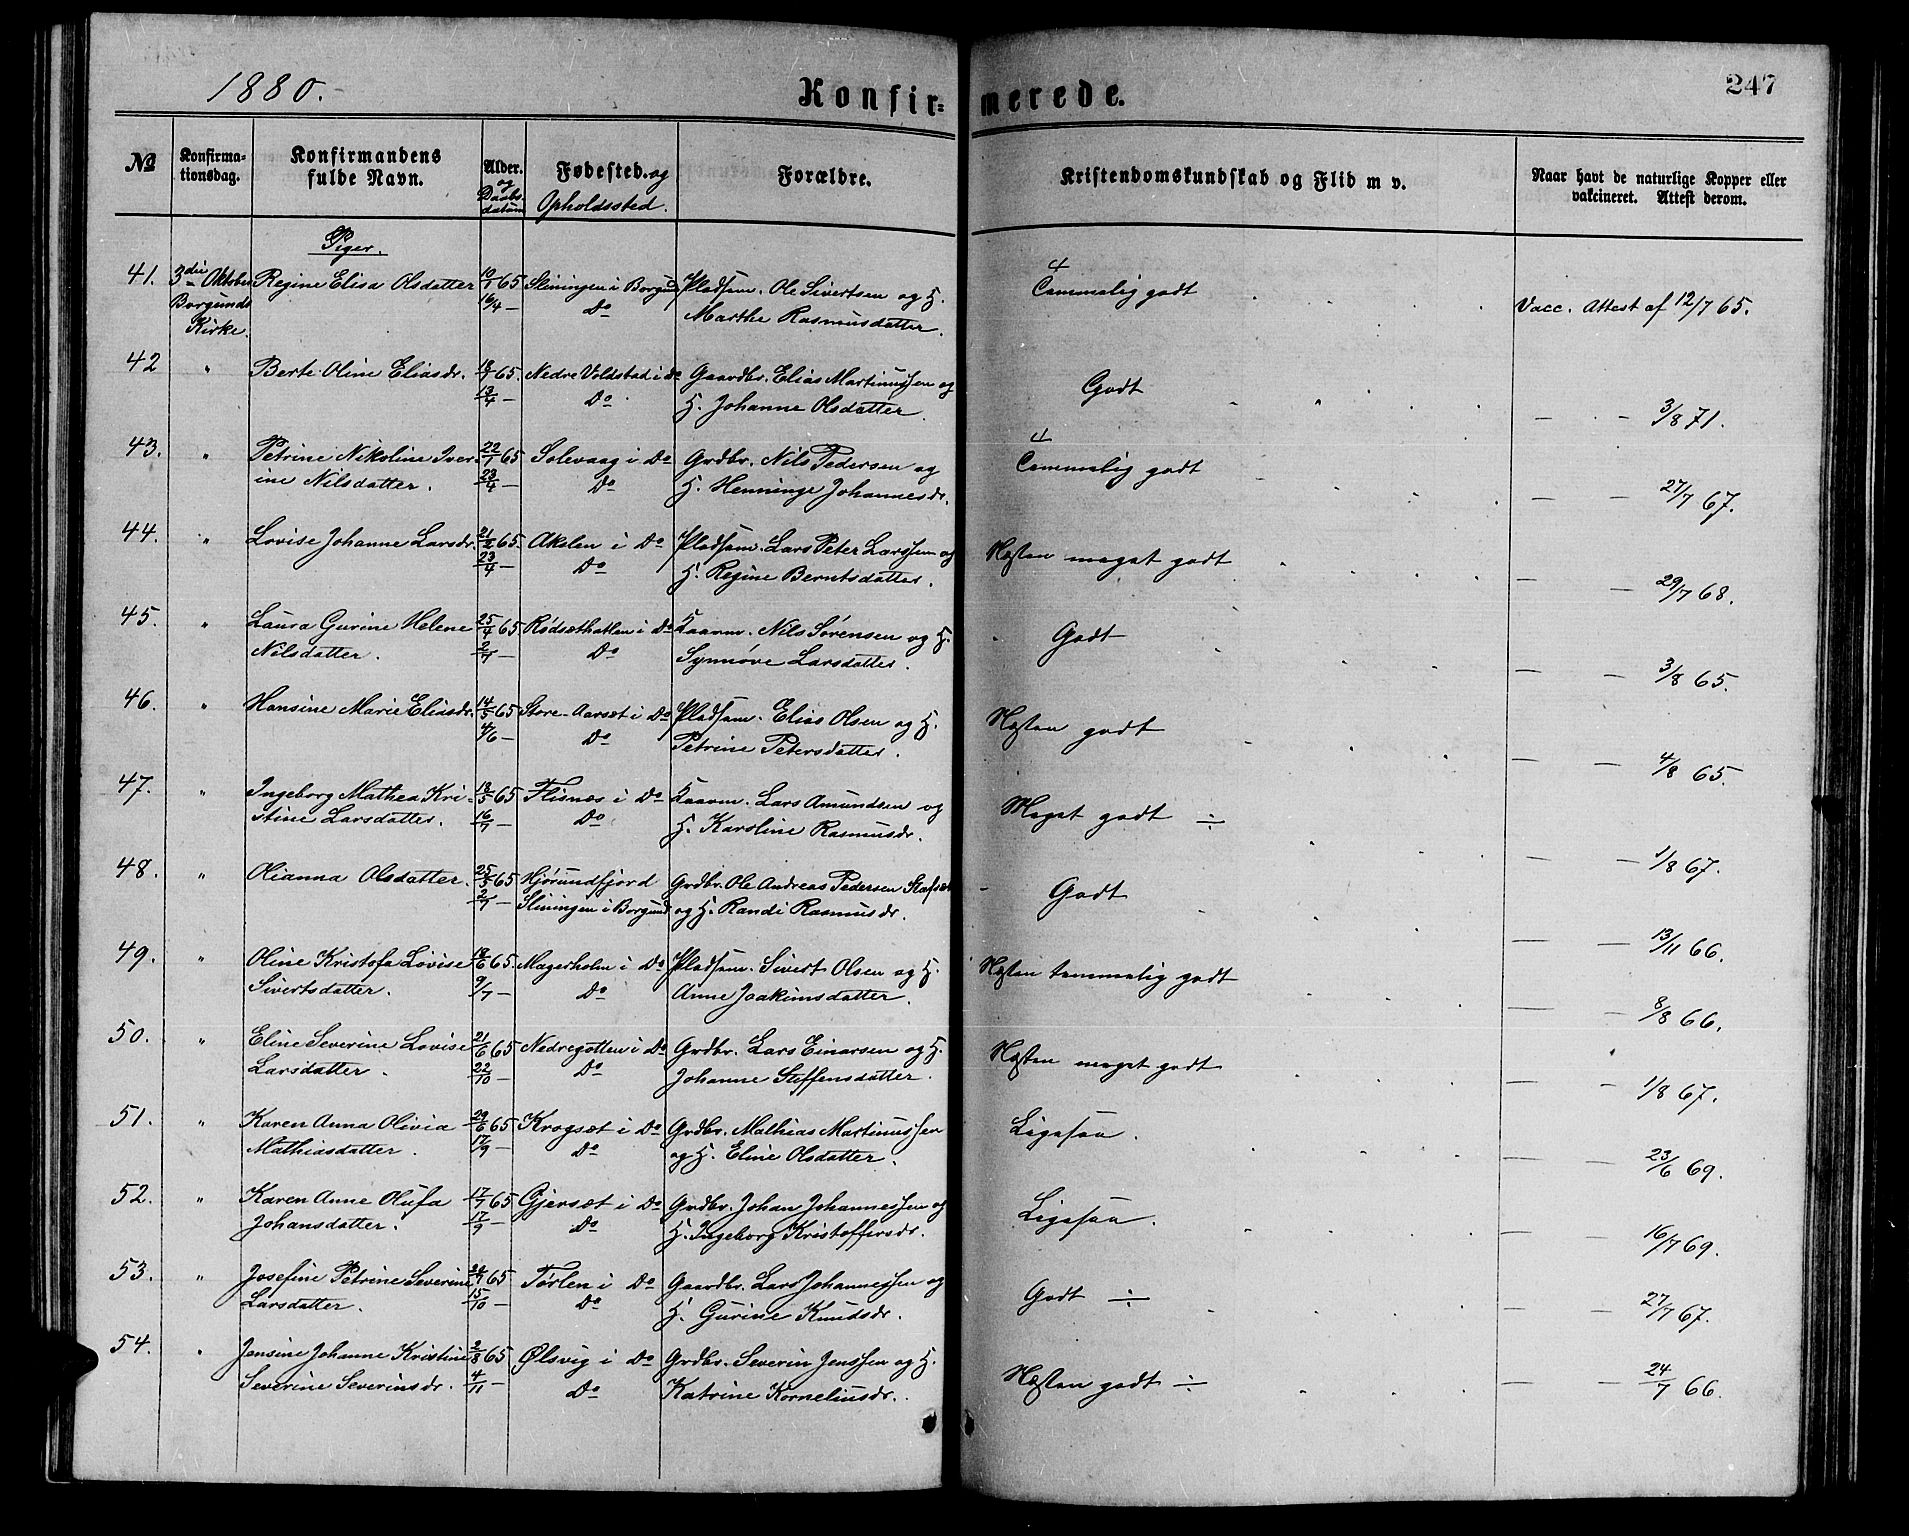 1880.
Konfir-
merede.
247
No
Konfirma-
tionsdag.
Konfirmandens
fulde Navn.
Alder.
og
Daabs-
datum
Fødested. og
Opholdssted.
Forældre.
Kristendomskundskab og Flid m v.
Naar havt de naturlige Kopper eller
vakcineret. Attest derom.
Piger.
41. 3die Oktober Regine Elisa Olsdatter 10/1 65 Slinningen i Borgund Pladsm. Ole Sivertsen og H. Temmelig godt Vacc. Attest af 12/7 65.
Borgunds 16/4 — Do Marthe Rasmusdatter.
Kirke.
42 " Berte Oline Eliasdr. 18/1 65. Nedre Voldstad i Do Gaardbr. Elias Martinussen og Godt — — 3/8 71.
13/4 — Do H. Johanne Olsdatter.
43. " Petrine Nikoline Iver- 22/1 65 Solevaag i Do Grdbr. Nils Pedersen og Temmelig godt — — 27/7 67.
ine Nilsdatter. 23/4 — Do H. Henninge Johannesdr.
44. " Lovise Johanne Larsdr. 21/2 65. Akslen i Do Pladsm. Lars Peter Larssen og Næsten meget godt — — 29/7 68.
23/4 — Do H. Regine Berntsdatter.
45. " Laura Gurine Helene 25/4 65 Rødsæthatlen i Do Kaarm. Nils Sørensen og H. Godt — — 3/8 65.
Nilsdatter. 2/7 — Do Synnøve Larsdatter.
46. " Hansine Marie Eliasdr. 14/5 65 Store-Aarset i Do Pladsm. Elias Olsen og H. Næsten godt — — 4/8 65.
4/6 — Do Petrine Petersdatter.
47. " Ingeborg Mathea Kri- 18/5 65 Flisnes i Do Kaarm. Lars Amundsen og Meget godt ÷ — — 1/8 67.
stine Larsdatter. 16/7 — Do H. Karoline Rasmusdr.
48. " Olianna Olsdatter. 25/5 65 Hjørundfjord Grdbr. Ole Andreas Pedersen Godt — — 13/11 66.
2/7 — Slinningen i Borgund og H. Randi Rasmusdr.
49. " Oline Kristofa Lovise 18/6 65. Magerholm i Do Pladsm. Sivert Olsen og H. Næsten temmelig godt — — 8/8 66.
Sivertsdatter. 9/7 — Do Anne Joakimsdatter.
50. " Eline Severine Lovise 21/6 65 Nedregotten i Do Grdbr. Lars Einarsen og H. Næsten meget godt — — 1/8 67.
Larsdatter. 22/10 — Do Johanne Steffensdatter.
51. " Karen Anna Olivia 29/6 65 Krogsæt i Do Grdbr. Mathias Martinussen Ligesaa. — — 23/6 69.
Mathiasdatter. 17/9 — Do og H. Eline Olsdatter.
52. " Karen Anne Olufa 17/7 65 Gjersæt i Do Grdbr. Johan Johannessen og Ligesaa. — — 16/7 69.
Johansdatter. 17/9 — Do H. Ingeborg Kristoffersdr.
53. " Josefine Petrine Severine 65 Tørlen i Do Gaardbr. Lars Johannessen og Godt ÷ — — 27/7 67.
Larsdatter. 15/10 — Do H. Gurine Knudsdr.
54. " Jensine Johanne Kristine 2/8 65 Ølsvig i Do Grdbr. Severin Jenssen og H. Næsten godt ÷ — — 24/7 66.
Severine Severinsdr. 4/11 — Do Katrine Korneliusdr.